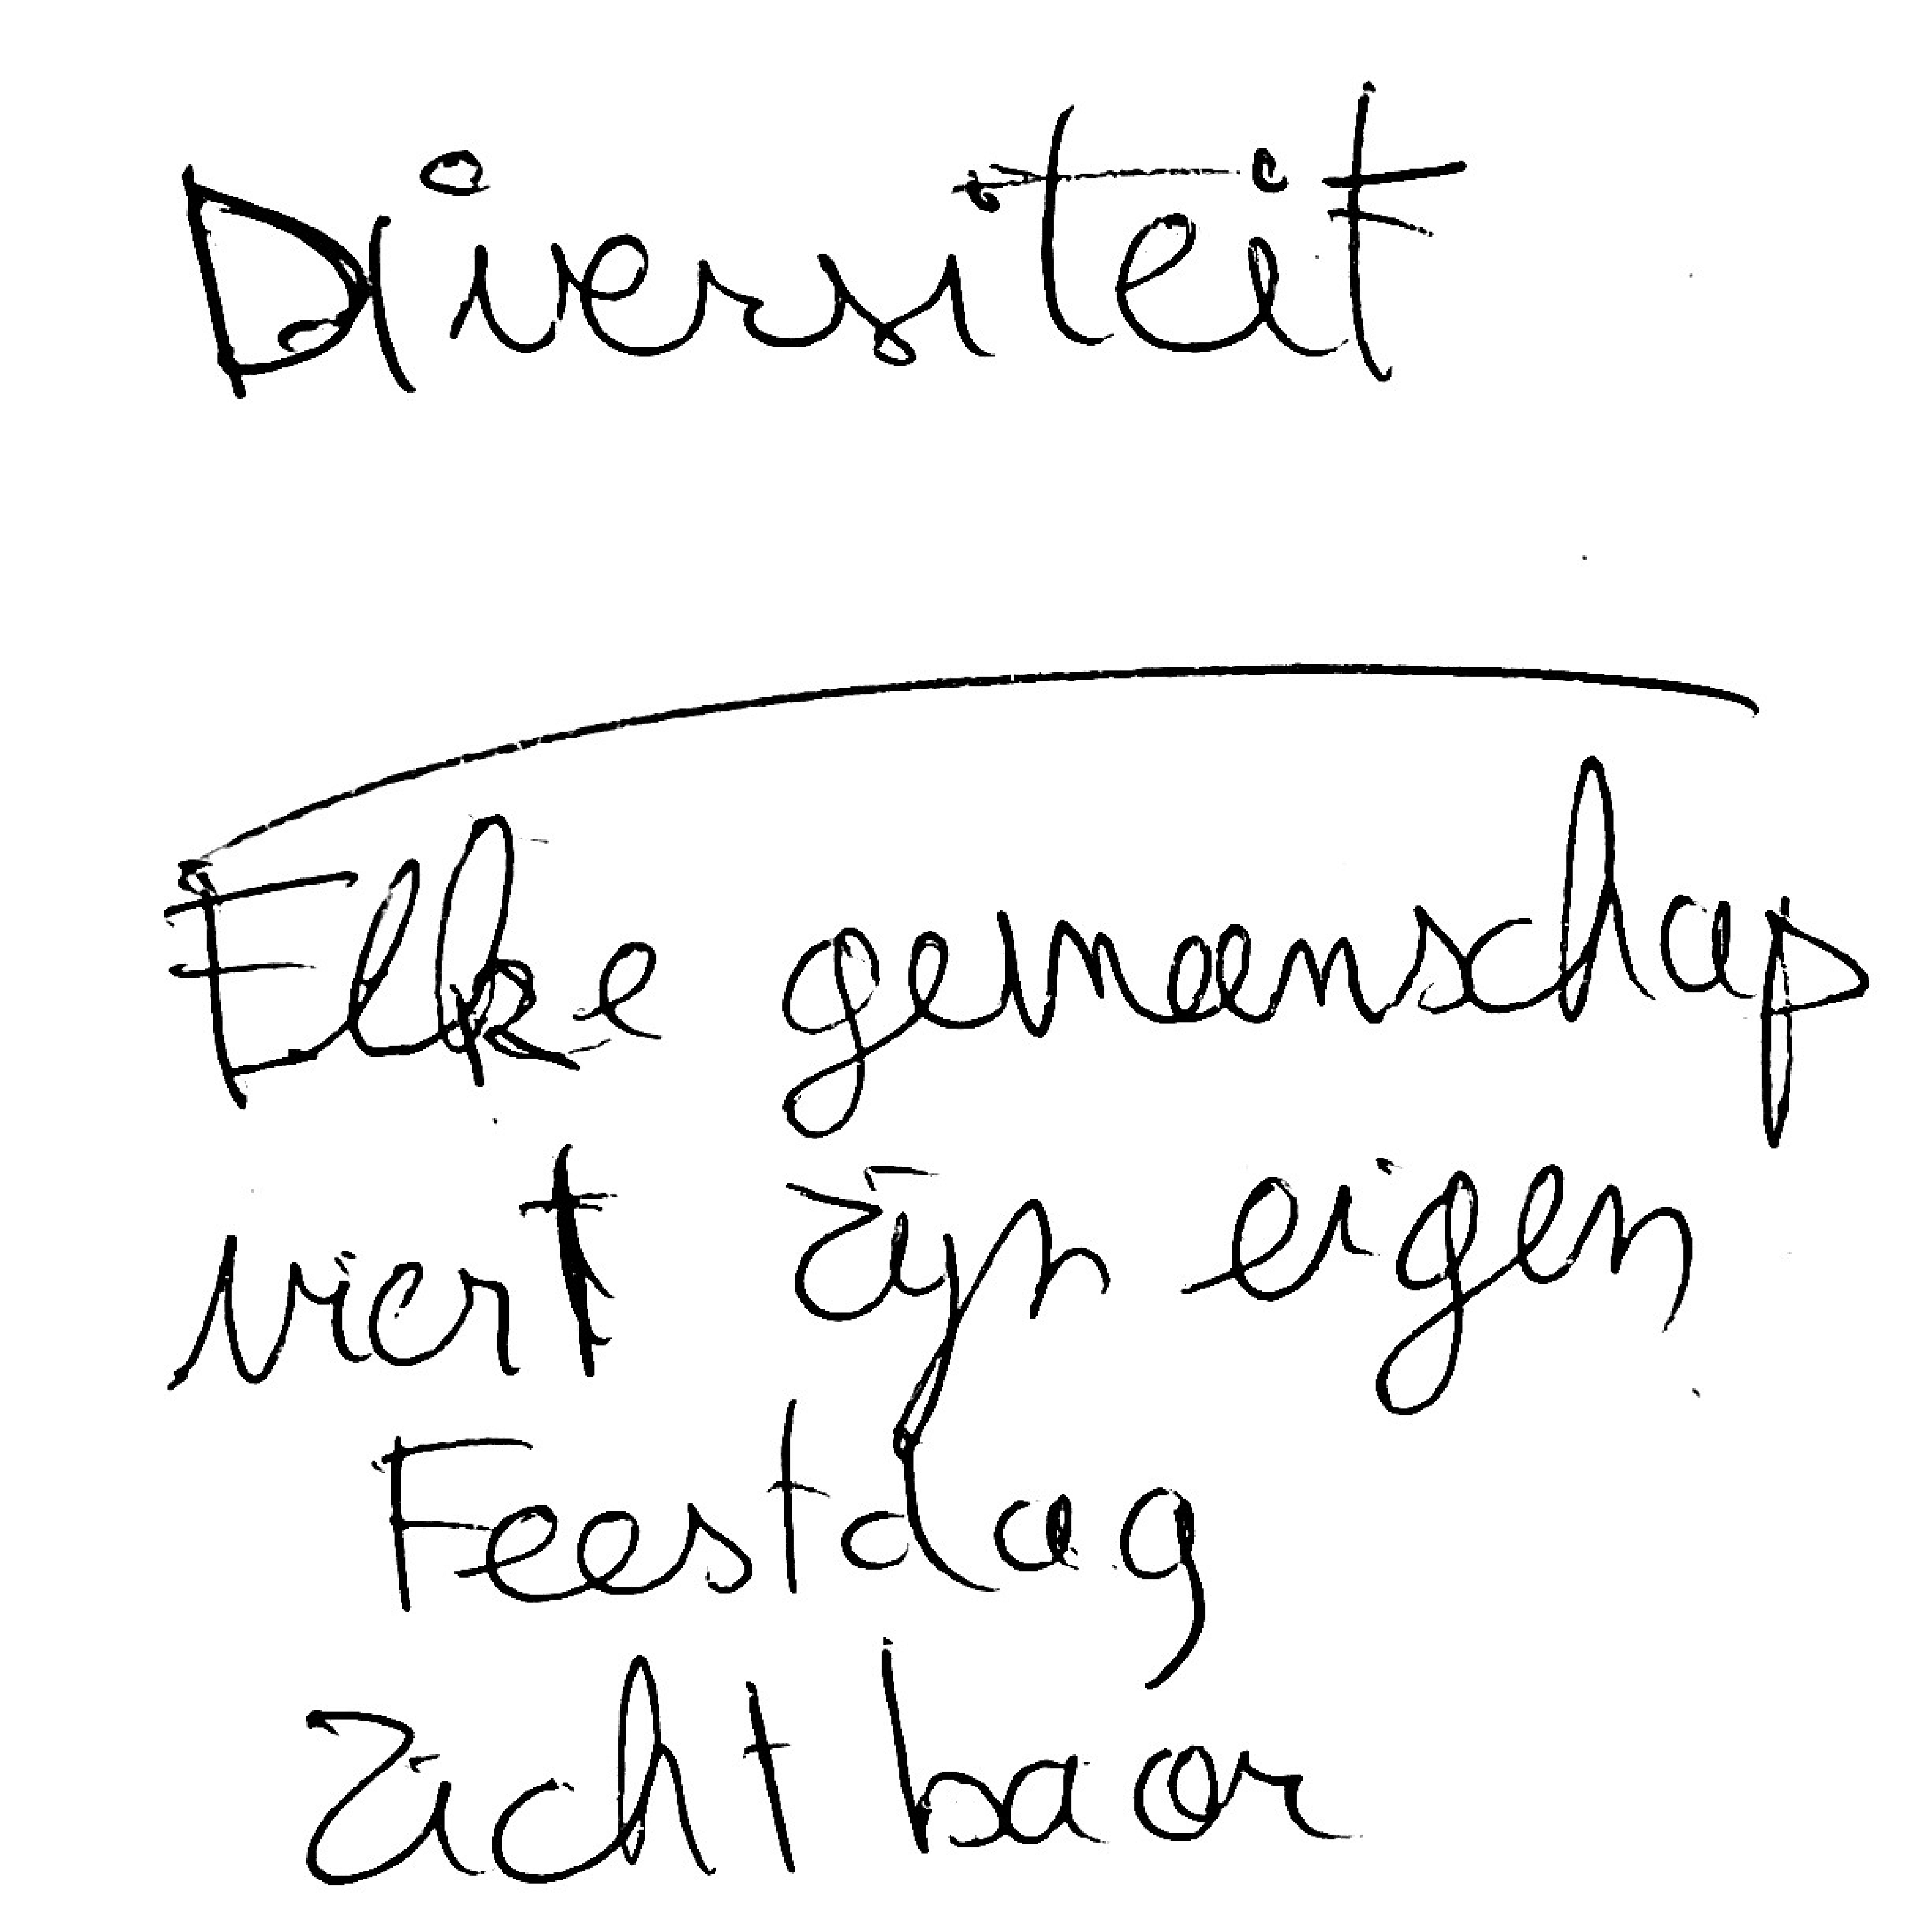 Diversiteit
Elke gemeenschap
viert zijn eigen
Feestdag
zichtbaar